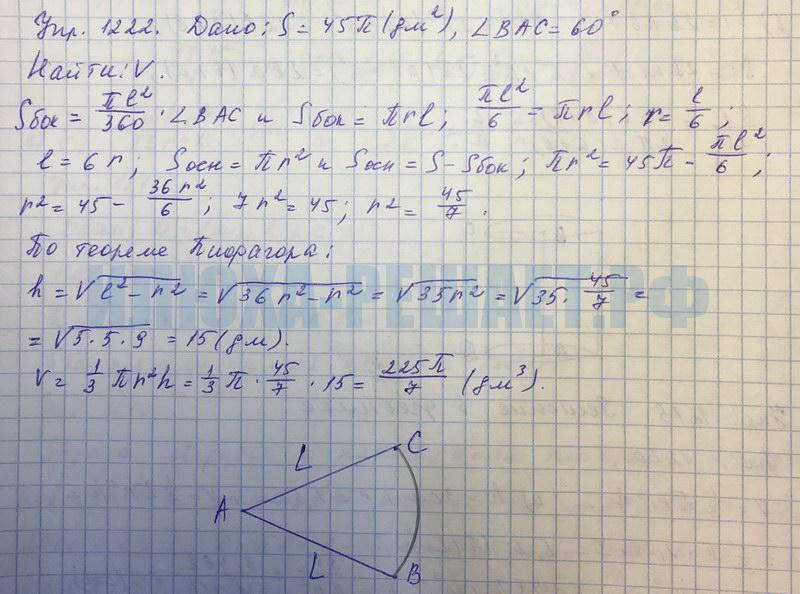 Упр. 1222. Дано: S = 45π (дм²), ∠BAC = 60°
Найти: V.
Sбок = πl²/360 · ∠BAC и Sбок = πrl; πl²/6 = πrl; r = l/6;
l = 6r; Sосн = πr² и Sосн = S - Sбок; πr² = 45π - πl²/6;
r² = 45 - 36r²/6; 7r² = 45; r² = 45/7.
По теореме Пифагора:
h = √(l² - r²) = √(36r² - r²) = √(35r²) = √(35 · 45/7) =
= √(5·5·9) = 15 (дм).
V = 1/3 πr²h = 1/3 π · 45/7 · 15 = 225π/7 (дм³).
ЯПОХА-РЕШАЕТ.РФ
L
C
A
L
B